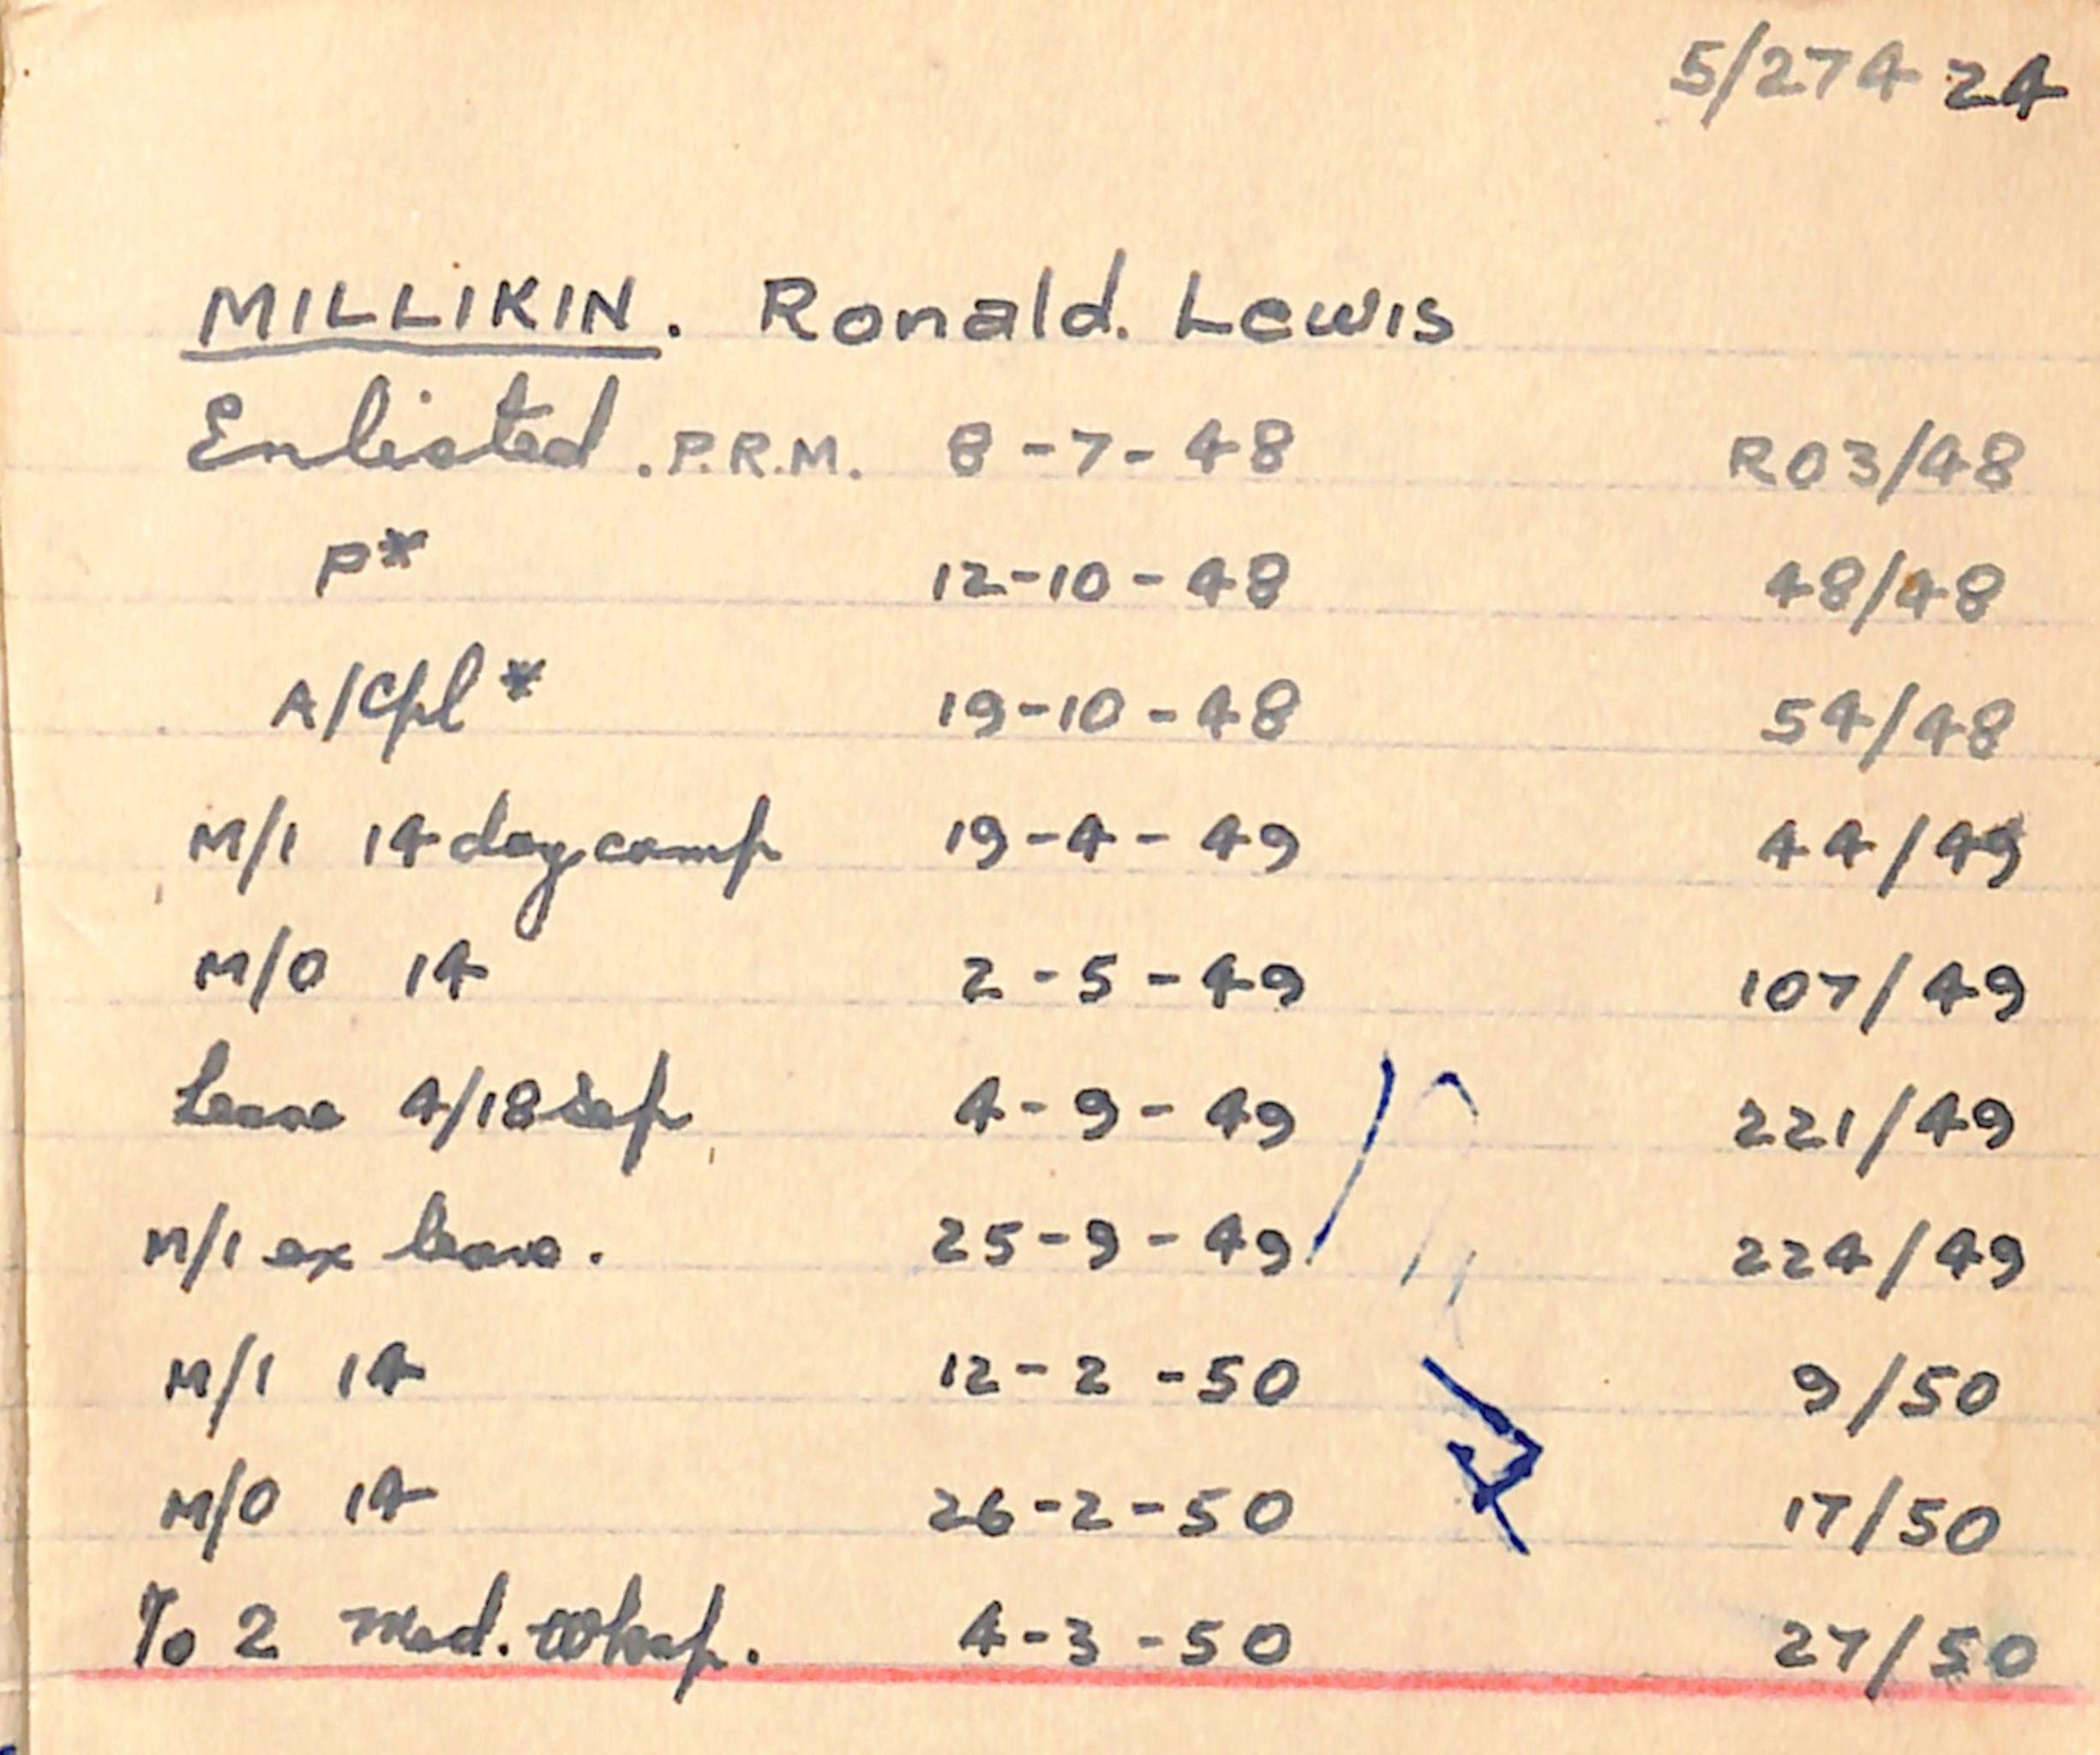 5/274 24
MILLIKIN. Ronald. Lewis
Enlisted .P.R.M. 8-7-48 R03/48
P* 12-10-48 48/48
A/Cpl* 19-10-48 54/48
M/I 14 day camp 19-4-49 44/49
M/O 14 2-5-49 107/49
Leave 4/18 Sep 4-9-49 221/49
M/I ex leave. 25-9-49 224/49
M/I 14 12-2-50 9/50
M/O 14 26-2-50 17/50
To 2 Med. Wksp. 4-3-50 27/50